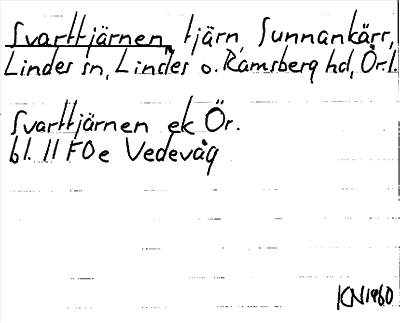 Svarttjärnen, tjärn, Sunnankärr,
Lindes sn, Lindes o. Ramsberg hd, Örl.
Svarttjärnen ek Ör.
bl. 11 F0e Vedevåg
KN1960